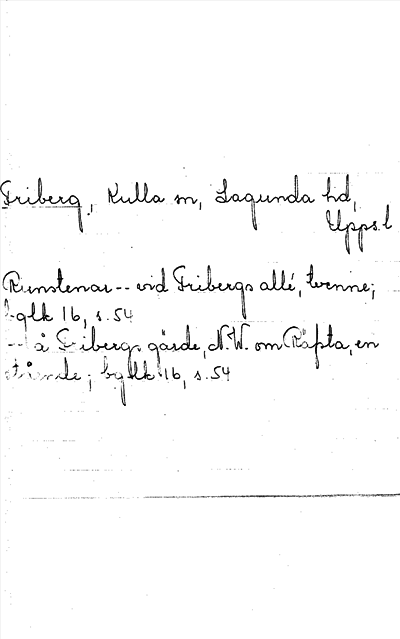 Friberg, Kulla sn, Lagunda hd,
Upps.l
Runstenar -- vid Fribergs allé, tvenne;
bglk 16, s. 54
-- å Fribergs gärde, N.W. om Räfsta, en
stående; bglk 16, s. 54